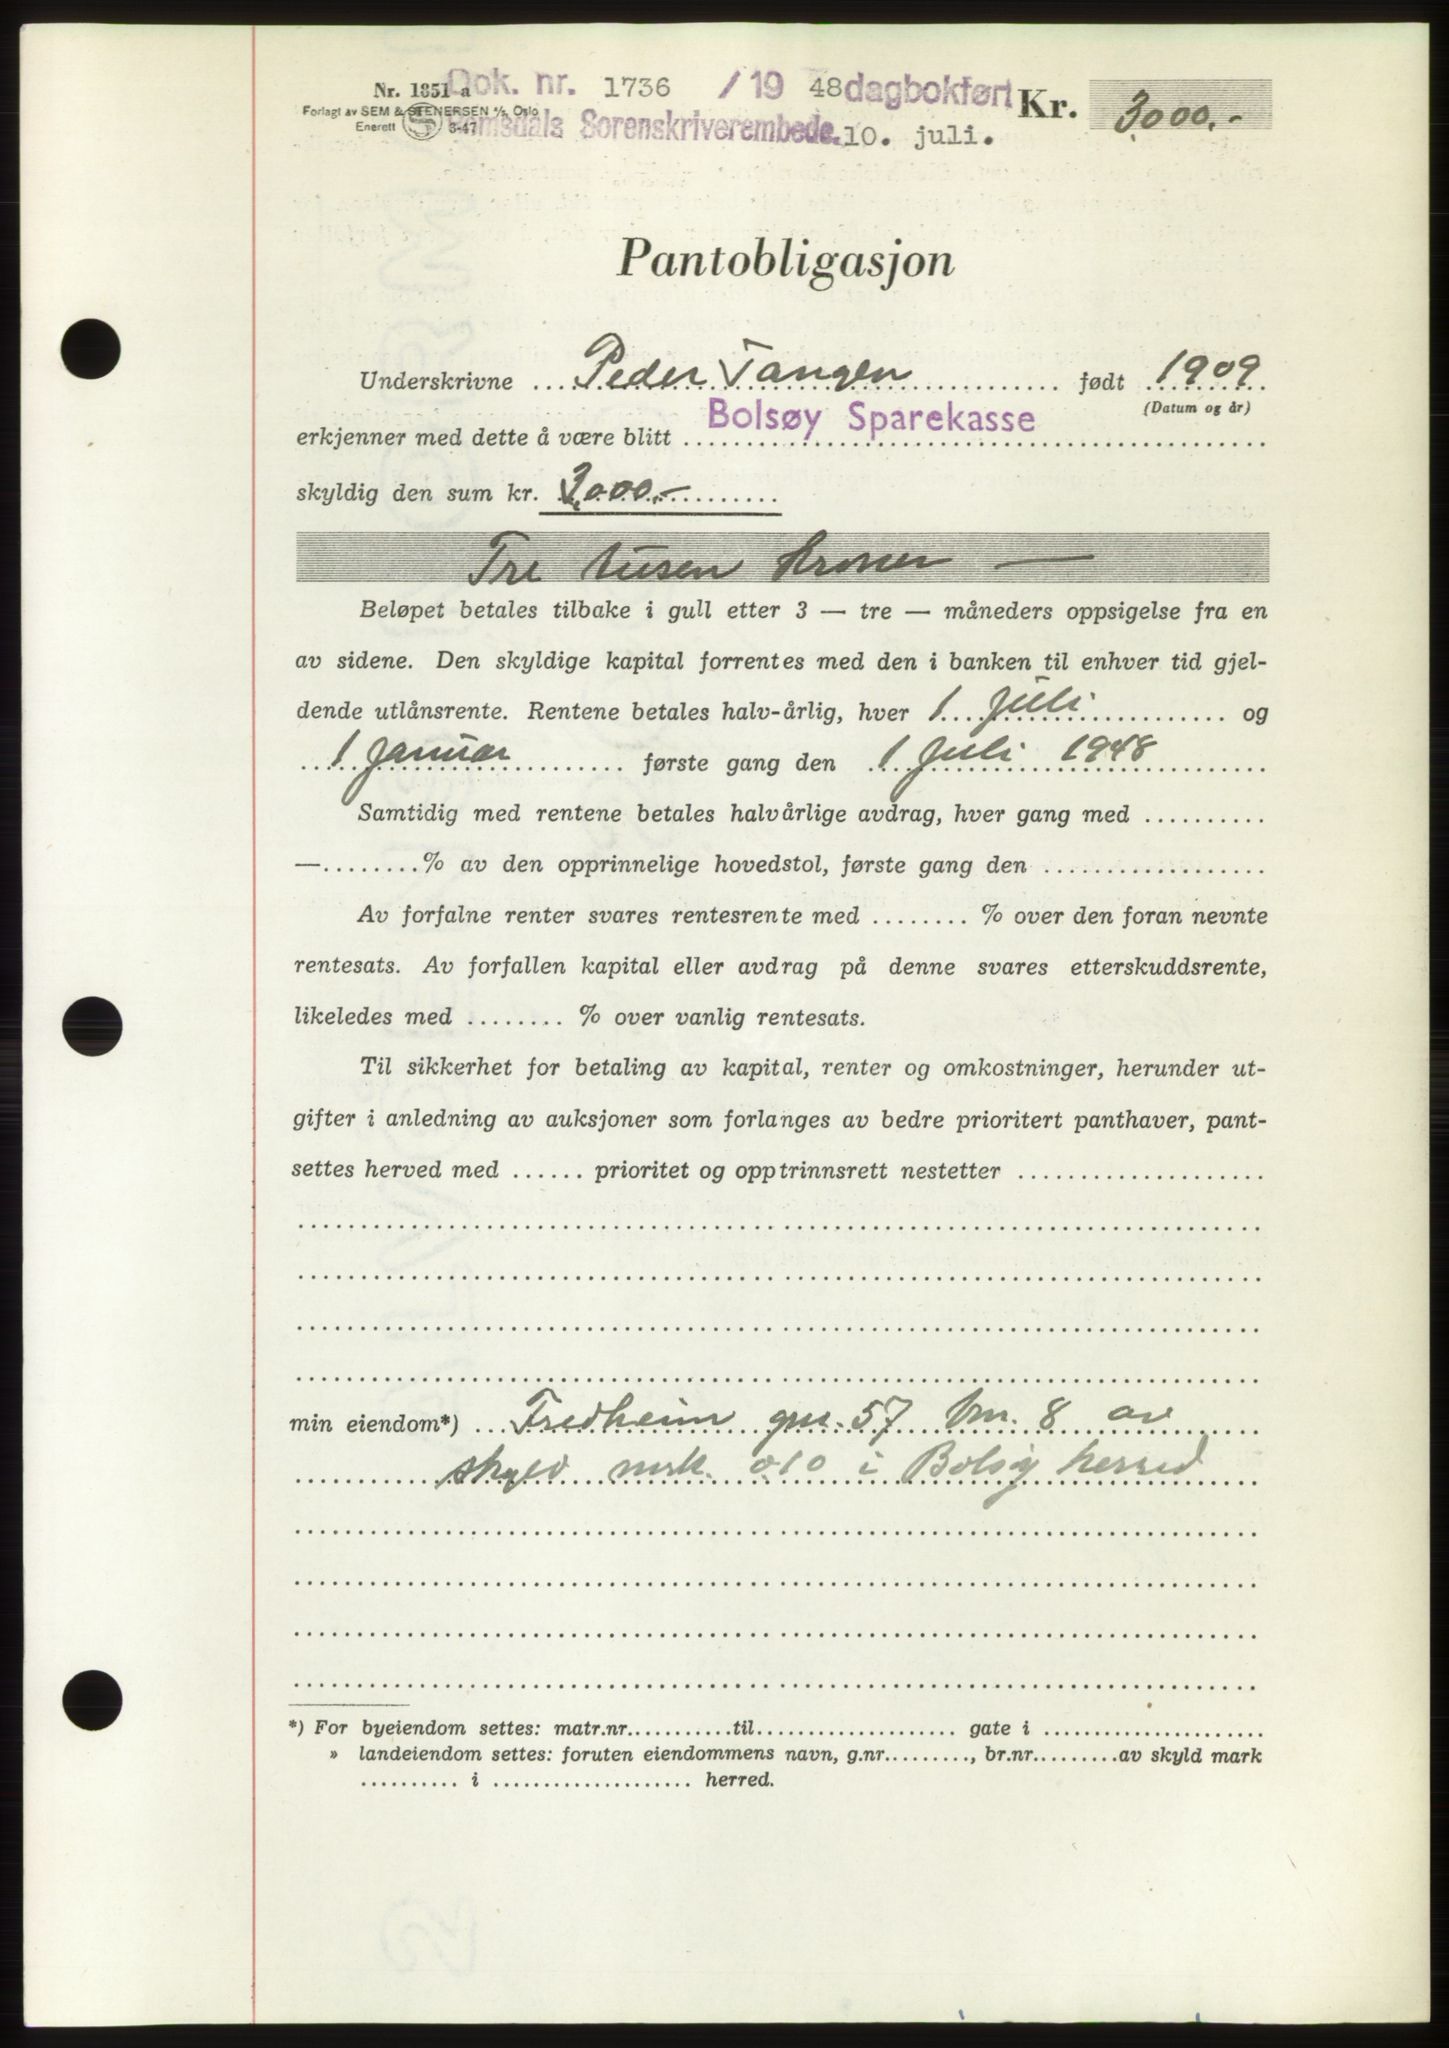 Nr. 1851 a Dok. nr. 1736 / 19 48 dagbokført Kr. 3000.-
Forlagt av SEM & STENERSEN A/S, Oslo
Enerett 3-47 Romsdals Sorenskriverembede. 10. juli.
Pantobligasjon
Underskrivne Peder Tangen født 1909
(Datum og år)
erkjenner med dette å være blitt Bolsøy Sparekasse
skyldig den sum kr. 3000.-
Tre tusen kroner —
Beløpet betales tilbake i gull etter 3 — tre — måneders oppsigelse fra en
av sidene. Den skyldige kapital forrentes med den i banken til enhver tid gjel-
dende utlånsrente. Rentene betales halv-årlig, hver 1 juli og
1 januar første gang den 1 juli 1948
Samtidig med rentene betales halvårlige avdrag, hver gang med ..........
—........% av den opprinnelige hovedstol, første gang den ..................
Av forfalne renter svares rentesrente med ........ % over den foran nevnte
rentesats. Av forfallen kapital eller avdrag på denne svares etterskuddsrente,
likeledes med ........ % over vanlig rentesats.
Til sikkerhet for betaling av kapital, renter og omkostninger, herunder ut-
gifter i anledning av auksjoner som forlanges av bedre prioritert panthaver, pant-
settes herved med ...... prioritet og opptrinnsrett nestetter ....................
min eiendom*) Fredheim gnr. 57 bnr. 8 av
skyld mrk. 010 i Bolsøy herred
*) For byeiendom settes: matr.nr...........til.................... gate i ......................
» landeiendom settes: foruten eiendommens navn, g.nr........., br.nr.........av skyld mark
.......... i .................... herred.